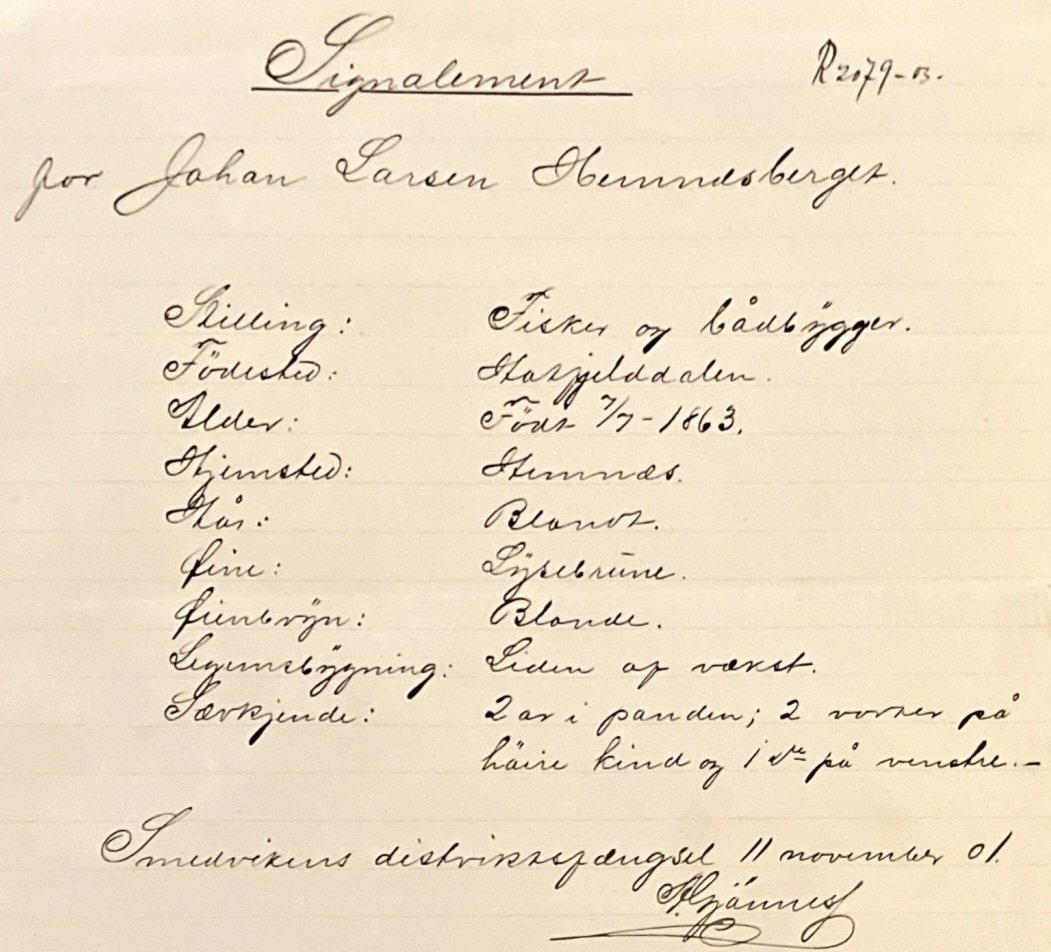 Signalement R 2079-03.
for Johan Larsen Hemndsberget.
Stilling: Fisker og bådbygger.
Födested: Hatfjelddalen.
Alder: Födt 7/7-1863.
Hjemsted: Hemnæs.
Hår: Blondt.
Øine: Lysebrune.
Øienbryn: Blonde.
Legemsbygning: Liden af vækst.
Særkjende: 2 ar i panden; 2 vorter på
höire kind og 1 do på venstre.-
Smedvikens distriktsfængsel 11 november 01.